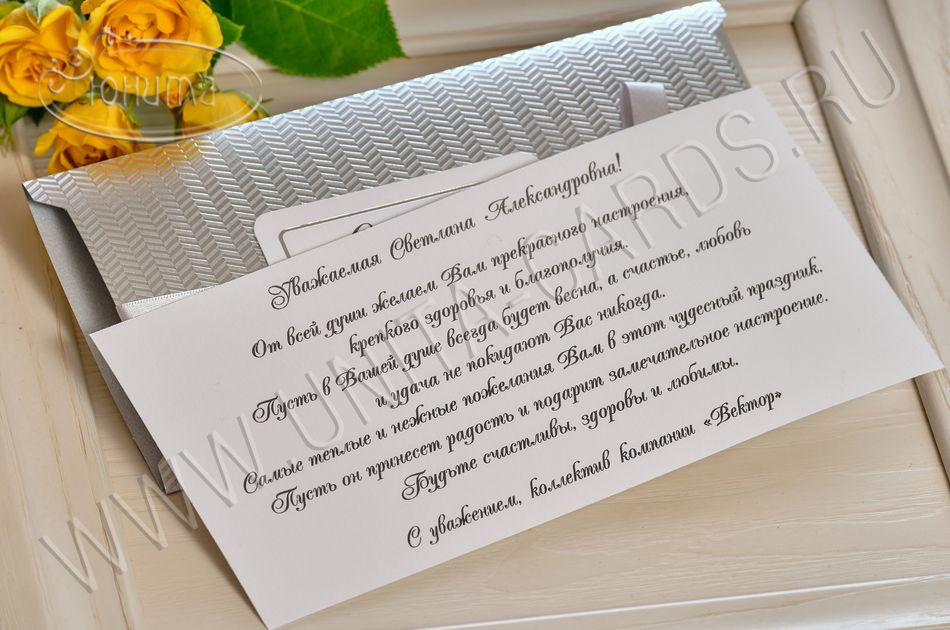 Юнита
Уважаемая Светлана Александровна!
От всей души желаем Вам прекрасного настроения,
крепкого здоровья и благополучия.
Пусть в Вашей душе всегда будет весна, а счастье, любовь
и удача не покидают Вас никогда.
Самые теплые и нежные пожелания Вам в этот чудесный праздник.
Пусть он принесет радость и подарит замечательное настроение.
Будьте счастливы, здоровы и любимы.
С уважением, коллектив компании «Вектор»
WWW.UNITA-CARDS.RU